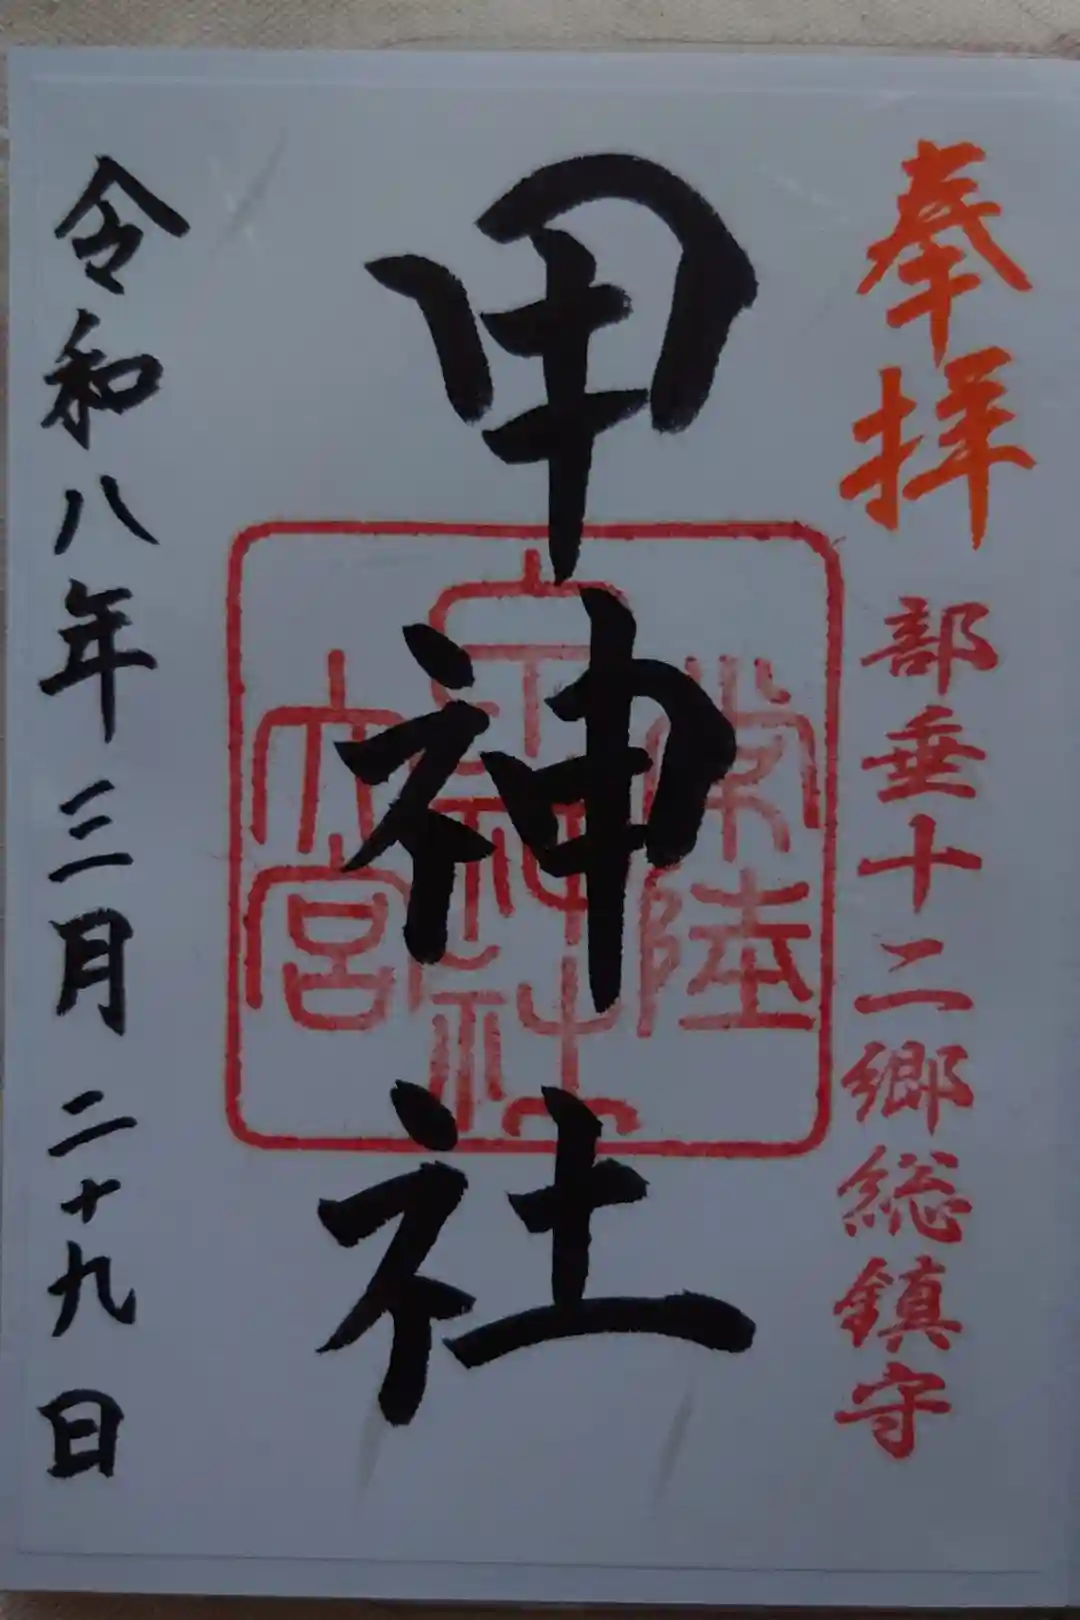 奉拝
部垂十二郷総鎮守
甲神社
常陸
甲神社
大宮
令和八年三月二十九日